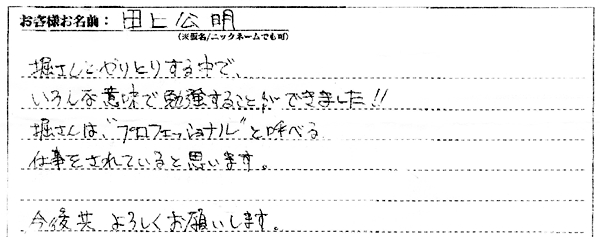 お客様お名前： 田上公明
（※仮名/ニックネームでも可）
堀さんとやりとりする中で、
いろんな意味で勉強することができました!!
堀さんは、"プロフェッショナル"と呼べる
仕事をされていると思います。
今後共 よろしくお願いします。